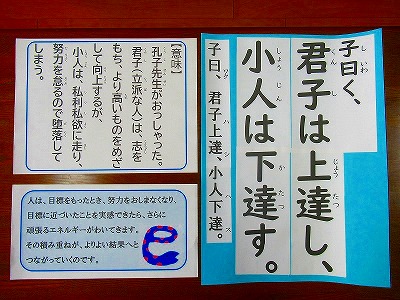 子曰く、
君子は上達し、
小人は下達す。
子曰、君子上達、小人下達。
【意味】
孔子先生がおっしゃった。
君子（立派な人）は、志を
もち、より高いものをめざ
して向上するが、
小人は、私利私欲に走り、
努力を怠るので堕落して
しまう。
人は、目標をもったとき、努力をおしまなくなり、
目標に近づいたことを実感できたら、さらに
頑張るエネルギーがわいてきます。
その積み重ねが、よりよい結果へと
つながっていくのです。